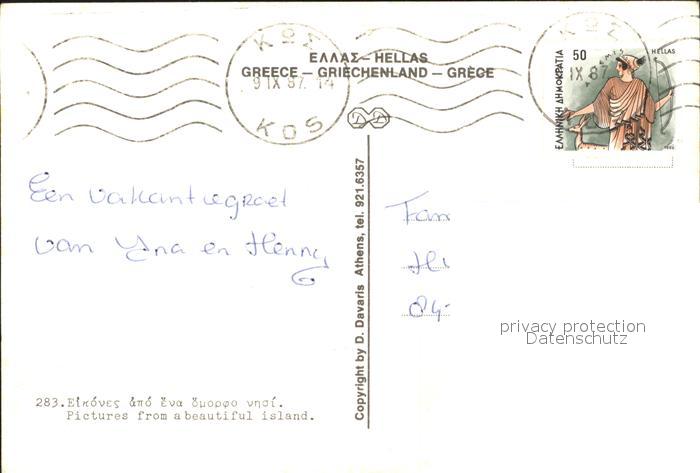 ΚΩΣ
9 IX 87. 14
KOS
ΕΛΛΑΣ – HELLAS
GREECE – GRIECHENLAND – GRÈCE
ΚΩΣ
IX 87
50
HELLAS
ΕΛΛΗΝΙΚΗ ΔΗΜΟΚΡΑΤΙΑ
ΑΡΤΕΜΙΣ
Een vakantiegroet
van Yna en Henny
Fam
Hi
84-
Copyright by D. Davaris Athens, tel. 921.6357
privacy protection
Datenschutz
283.Εἰκόνες ἀπό ἕνα ὄμορφο νησί.
Pictures from a beautiful island.